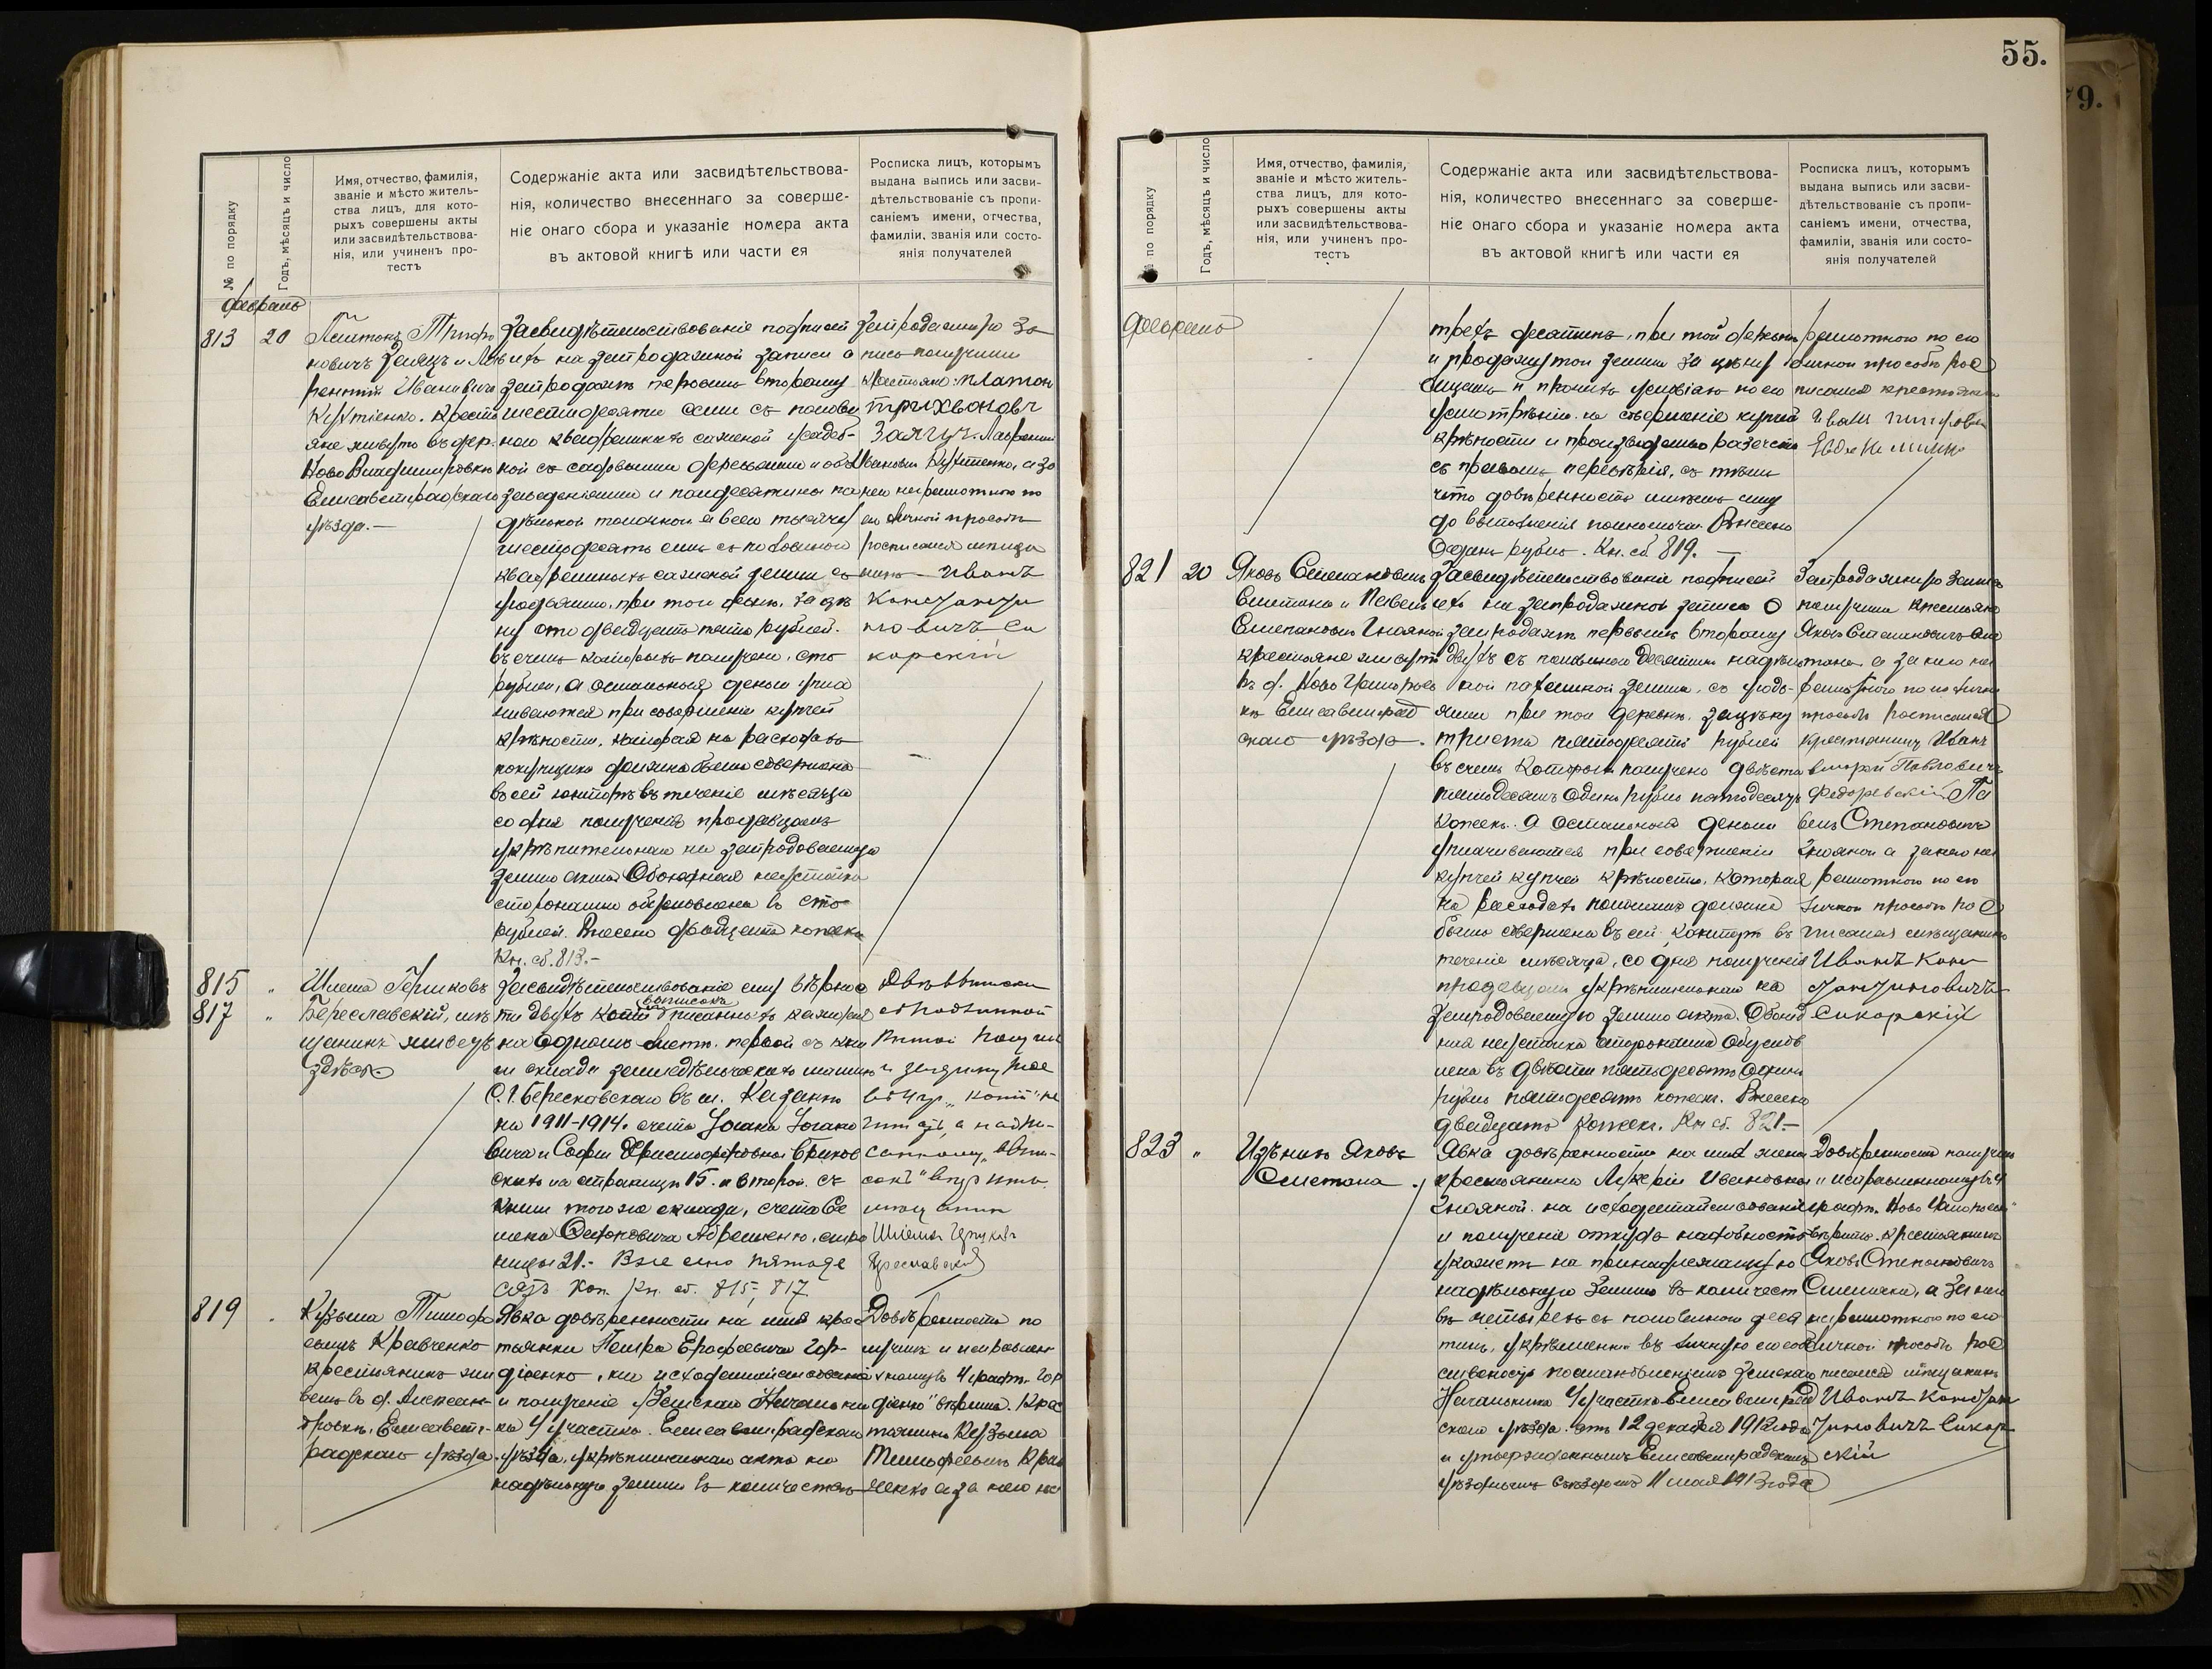 55.
9.
№ по порядку
Годъ, мѣсяцъ и число
Имя, отчество, фамилія,
званіе и мѣсто житель-
ства лицъ, для кото-
рыхъ совершены акты
или засвидѣтельствова-
нія, или учиненъ про-
тестъ
Содержаніе акта или засвидѣтельствова-
нія, количество внесеннаго за соверше-
ніе онаго сбора и указаніе номера акта
въ актовой книгѣ или части ея
Росписка лицъ, которымъ
выдана выпись или засви-
дѣтельствованіе съ пропи-
саніемъ имени, отчества,
фамиліи, званія или состо-
янія получателей
февраль
813
20
новичъ Заяцъ и Лав-
рентій Ивановичъ
Крестья-
яне живутъ въ дер.
Ново Владимировкѣ
Елисаветградскаго
уѣзда.—
Засвидѣтельствованіе подписей
ихъ на запродажной записи о
запродажѣ первымъ второму
шестидесяти семи съ полови-
ною квадратныхъ саженей усадеб-
ной съ садовыми деревьями и
заведеніями и полдесятины на-
дѣльной толочной а всего тысячу
шестьдесятъ семь съ половиной
квадратныхъ саженей земли съ
угодьями, при той дерев. за цѣ-
ну сто двадцать пять рублей.
въ счетъ которыхъ получено, сто
рублей, а остальныя деньги упла-
чиваются при совершеніи купчей
крѣпости, которая на расходы
покупщика должна быть совершена
въ сей конторѣ въ теченіе мѣсяца
со дня полученія продавцомъ
укрѣпительнаго на запродаваемую
землю акта. Обоюдная неустойка
сторонами обусловлена въ сто
рублей. Внесено двадцать копѣекъ
Кн. сб. 813.—
Запродажную за-
пись получили
крестьяне: Платон
Трихвоновъ
Заяцъ. Лаврентій
Ивановичъ а за
него неграмотнаго по
его личной просьбѣ
росписался мѣща-
нинъ — Иванъ
Конста нти
новичъ Си
корскій
815
817
"
"
Шлема Гершковъ
Береславскій, мѣ-
щанинъ живетъ
здѣсь
Засвидѣтельствованіе ему вѣрнос-
ти двухъ копій выписокъ писанныхъ каждая
на одномъ листѣ. первой съ кни
ги склада земледѣльческихъ машинъ
С. Г. Береславскаго въ м. Казанкѣ
на 1911-1914. счета Іогана Іогано
вича и Софіи Христофоровны
скихъ на страницѣ 15. и второй съ
книги того же склада, счета Се
мена Абраменко, стра
ницы 21.— Взыскано пятьде
сятъ коп. Кн. сб. 815, 817
Двѣ выписки
съ подлинной
книгой получилъ
Шлема Гершковъ
Береславскій
819
"
Кузьма Тимофе
евичъ Кравченко
крестьянинъ жи
ветъ въ д. Алексан-
дровкѣ, Елисаветг-
радскаго уѣзда.
Явка довѣренности на имя крес
тьянки Петра Ерофеевича Гор-
діенко, на исходатайствованіе
и полученіе у Земскаго Начальни
ка 4 участка. Елисаветградскаго
уѣзда, укрѣпительнаго акта на
надѣльную землю въ количествѣ
Довѣренность по
лучилъ и исправлен
ному въ 4 графѣ. "Гор
діенко" вѣритъ. Крес
тьянинъ Кузьма
Тимофеевичъ Крав
ченко а за него не
№ по порядку
Годъ, мѣсяцъ и число
Имя, отчество, фамилія,
званіе и мѣсто житель-
ства лицъ, для кото-
рыхъ совершены акты
или засвидѣтельствова-
нія, или учиненъ про-
тестъ
Содержаніе акта или засвидѣтельствова-
нія, количество внесеннаго за соверше-
ніе онаго сбора и указаніе номера акта
въ актовой книгѣ или части ея
Росписка лицъ, которымъ
выдана выпись или засви-
дѣтельствованіе съ пропи-
саніемъ имени, отчества,
фамиліи, званія или состо-
янія получателей
февраль
трехъ десятинъ, при той деревнѣ
и продажу той земли за цѣну
лицамъ и прочихъ условіяхъ по его
усмотрѣнію. на совершеніе купчей
крѣпости и производство разсчета
съ правомъ передовѣрія, съ тѣмъ
что довѣренность имѣетъ силу
до выполненія полномочія. Внесено
Одинъ рубль. Кн. сб 819. —
грамотнаго по его
личной просьбѣ рос
писался крестьянинъ
821
20
Яковъ Степановичъ
Сметана и Павелъ
Степановичъ Гнояной
крестьяне живутъ
въ д. Ново Григорьев
кѣ Елисаветград
скаго уѣзда.
Засвидѣтельствованіе подписей
ихъ на запродажной записи о
запродажѣ первымъ второму
двухъ съ половиной десятинъ надѣль
ной пахатной земли, съ угодь-
ями при той деревнѣ. за цѣну
триста пятьдесятъ рублей
въ счетъ которыхъ получено двѣсти
пятьдесятъ одинъ рубль пятьдесятъ
копѣекъ. а остальныя деньги
уплачиваются при совершеніи
купчей купчей крѣпости, которая
на расходахъ должна
быть совершена въ сей конторѣ въ
теченіе мѣсяца, со дня полученія
продавцомъ укрѣпительнаго на
запродаваемую землю акта. Обоюд
ная неустойка сторонами обуслов
лена въ двѣсти пятьдесятъ одинъ
рубль пятьдесятъ копѣекъ. Внесено
двадцать копѣекъ. Кн сб. 821.—
Запродажную запись
получили крестьяне
Яковъ Степановичъ Сме
тана, а за него не
грамотнаго по его личной
просьбѣ росписался
крестьянинъ Иванъ
второй Павловичъ
Федоревскій Па
велъ Степановичъ
Гнояной а за него не
грамотнаго по его
личной просьбѣ рос
писался мѣщанинъ
Иванъ Конс
тантиновичъ
Сикорскій
823
"
Яковъ
Сметана.
Явка довѣренности на имя жены
крестьянина Лукеріи Ивановны
Гнояной. на исходатайствованіе
и полученіе откуда надобность
укажетъ на принадлежащую
надѣльную землю въ количест
вѣ четырехъ съ половиною деся
тинъ, укрѣпленной въ личную его соб
ственность постановленіемъ Земскаго
Начальника 4 участка Елисаветград
скаго уѣзда. отъ 12 декабря 1912 года
и утвержденнымъ Елисаветградскимъ
уѣзднымъ съѣздомъ 11 мая 1913 года
Довѣренность получилъ
и исправленному въ 4
графѣ. "Ново
вѣритъ. крестьянинъ
Яковъ Степановичъ
Сметана, а за него
неграмотнаго по его
личной просьбѣ рос
писался мѣщанинъ
Иванъ Констан
тиновичъ Сикор
скій